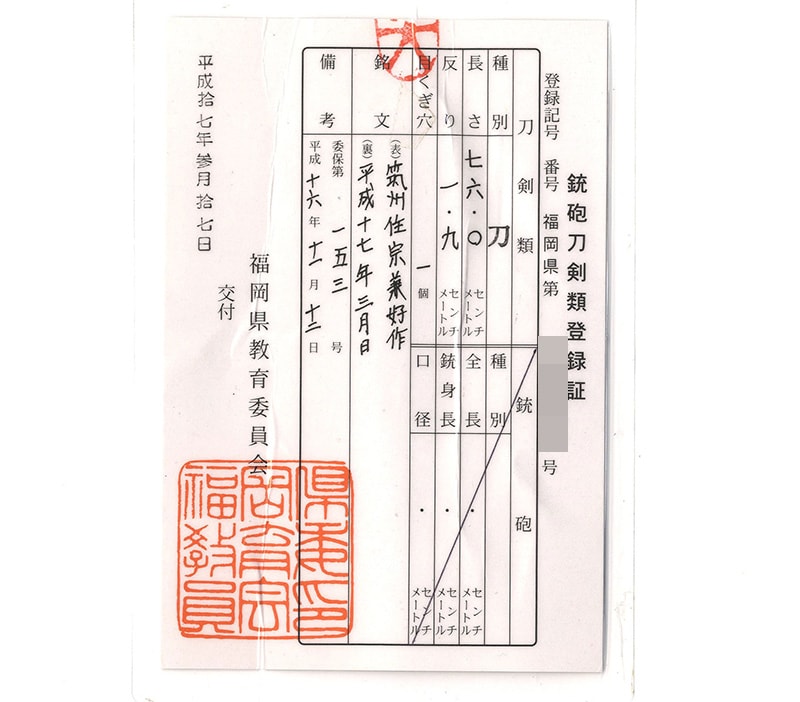 銃砲刀剣類登録証
登録記号 番号 福岡県第 号
刀剣類
種別 刀
長さ 七六・〇 センチメートル
反り 一・九 センチメートル
目くぎ穴 一 個
銘文
(表) 筑州住宗兼好作
(裏) 平成十七年三月日
備考
委保第 一五三 号
平成 十六 年 十一 月 十二 日
銃砲
種別
全長 ・ センチメートル
銃身長 ・ センチメートル
口径 ・ センチメートル
福岡県教育委員会
交付
平成拾七年参月拾七日
県委印
岡育会
福教員